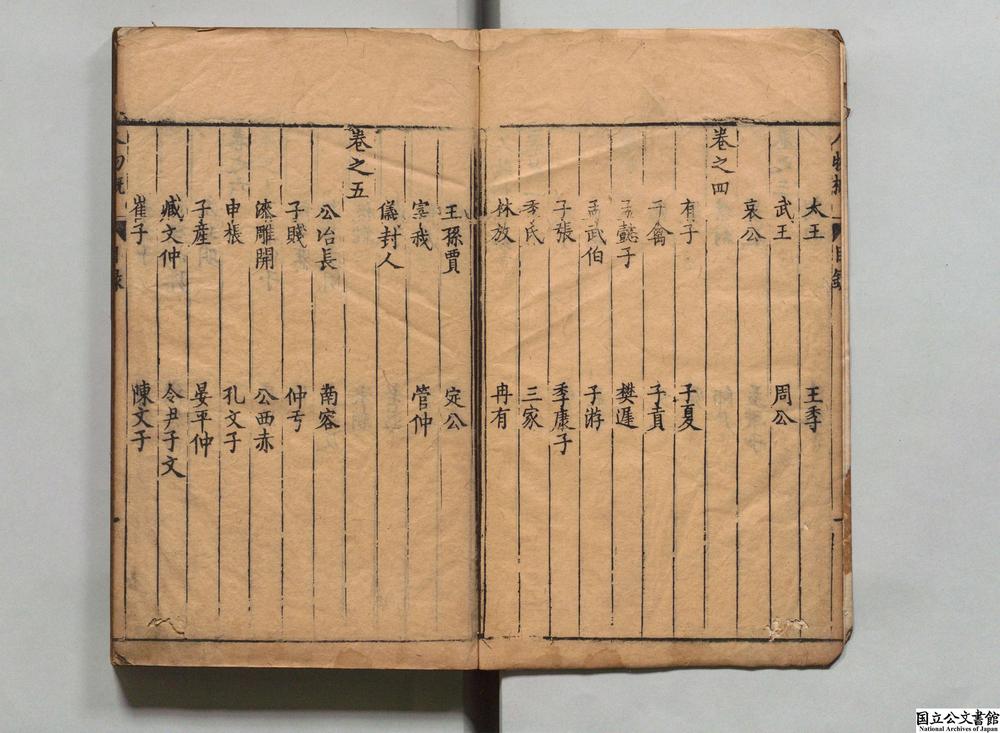 太王 王季
武王 周公
哀公
卷之四
有子 子夏
子禽 子貢
孟懿子 樊遲
孟武伯 子游
子張 季康子
季氏 三家
林放 冉有
王孫賈 定公
宰我 管仲
儀封人
卷之五
公冶長 南容
子賤 仲弓
漆雕開 公西赤
申棖 孔文子
子產 晏平仲
臧文仲 令尹子文
崔子 陳文子
国立公文書館
National Archives of Japan